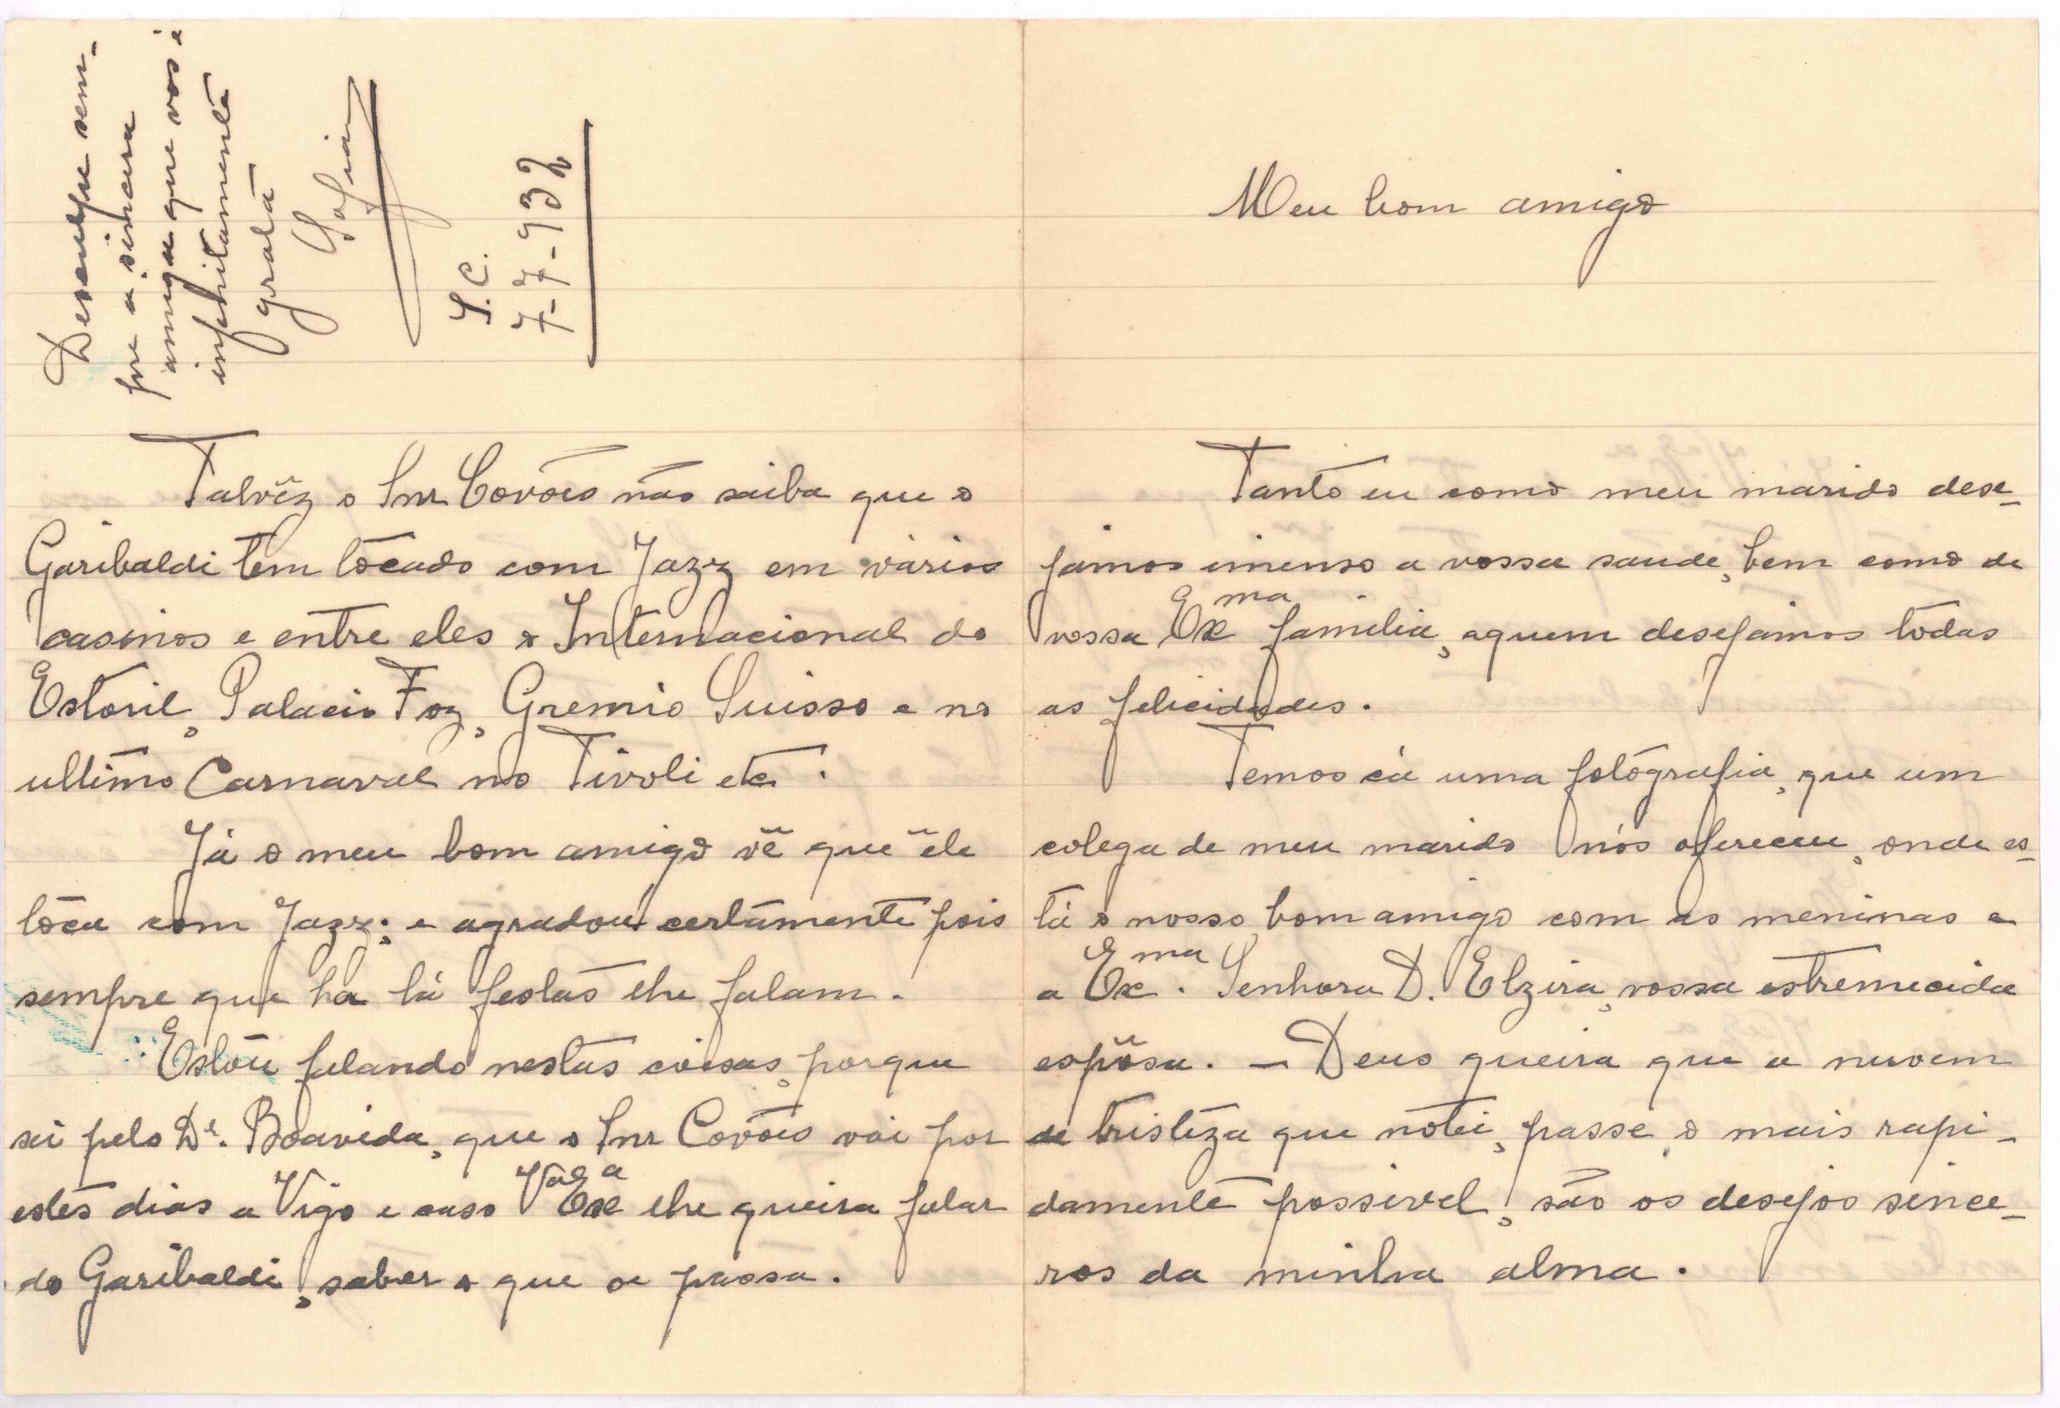 Meu bom amigo
Tanto eu como meu marido dese-
jamos imenso a vossa saude, bem como de
vossa Exma familia, aquem desejamos todas
as felicidades.
Temos cá uma fotografia, que um
colega de meu marido nós ofereceu, onde es-
tá o nosso bom amigo com as meninas e
a Exma. Senhora D. Elzira, vossa estremecida
espôsa. - Deus queira que a nuvem
de tristeza que notei, passe o mais rapi-
damente possivel, são os desejos since-
ros da minha alma.
Talvêz o Snr Covões não saiba que o
Garibaldi tem tocado com Jazz em vários
casinos e entre eles o Internacional do
Estoril, Palacio Foz, Gremio Suisso e no
ultimo Carnaval no Tivoli etc.
Já o meu bom amigo vê que êle
toca com Jazz; e agradou certamente pois
sempre que ha lá festas lhe falam.
Estou falando nestas coisas, porque
sei pelo Dr. Boavida, que o Snr Covões vai por
estes dias a Vigo e caso Vª Exª lhe queira falar
do Garibaldi, saber o que se passa.
Desculpe sem-
pre a sincera
amiga que vos é
infinitamente
grata
Sofia
S.C.
7-7-932